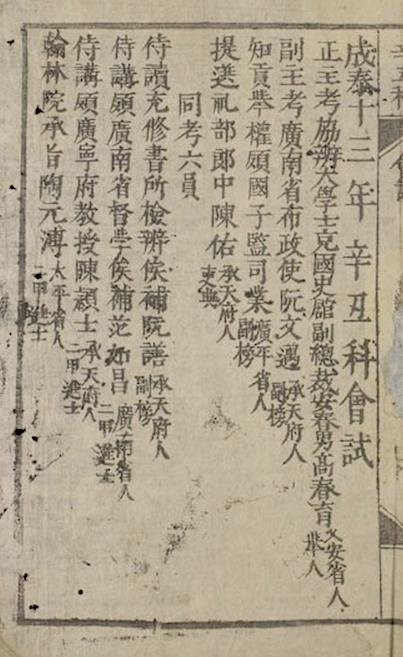 成泰十三年辛丑科會試
正主考協辦大學士克國史館副總裁安春男高春育乂安省人舉人
副主考廣南省布政使阮文邁承天府人副榜
知貢舉權領國子監司業廣平省人副榜
提選礼部郎中陳佑承天府人吏典
同考六員
侍讀充修書所檢辦候補阮譱承天府人副榜
侍講領廣南省督學候補范如昌廣南省人二甲進士
侍講領廣寧府教授陳頴士承天府人二甲進士
翰林院承旨陶元溥太平省人二甲進士